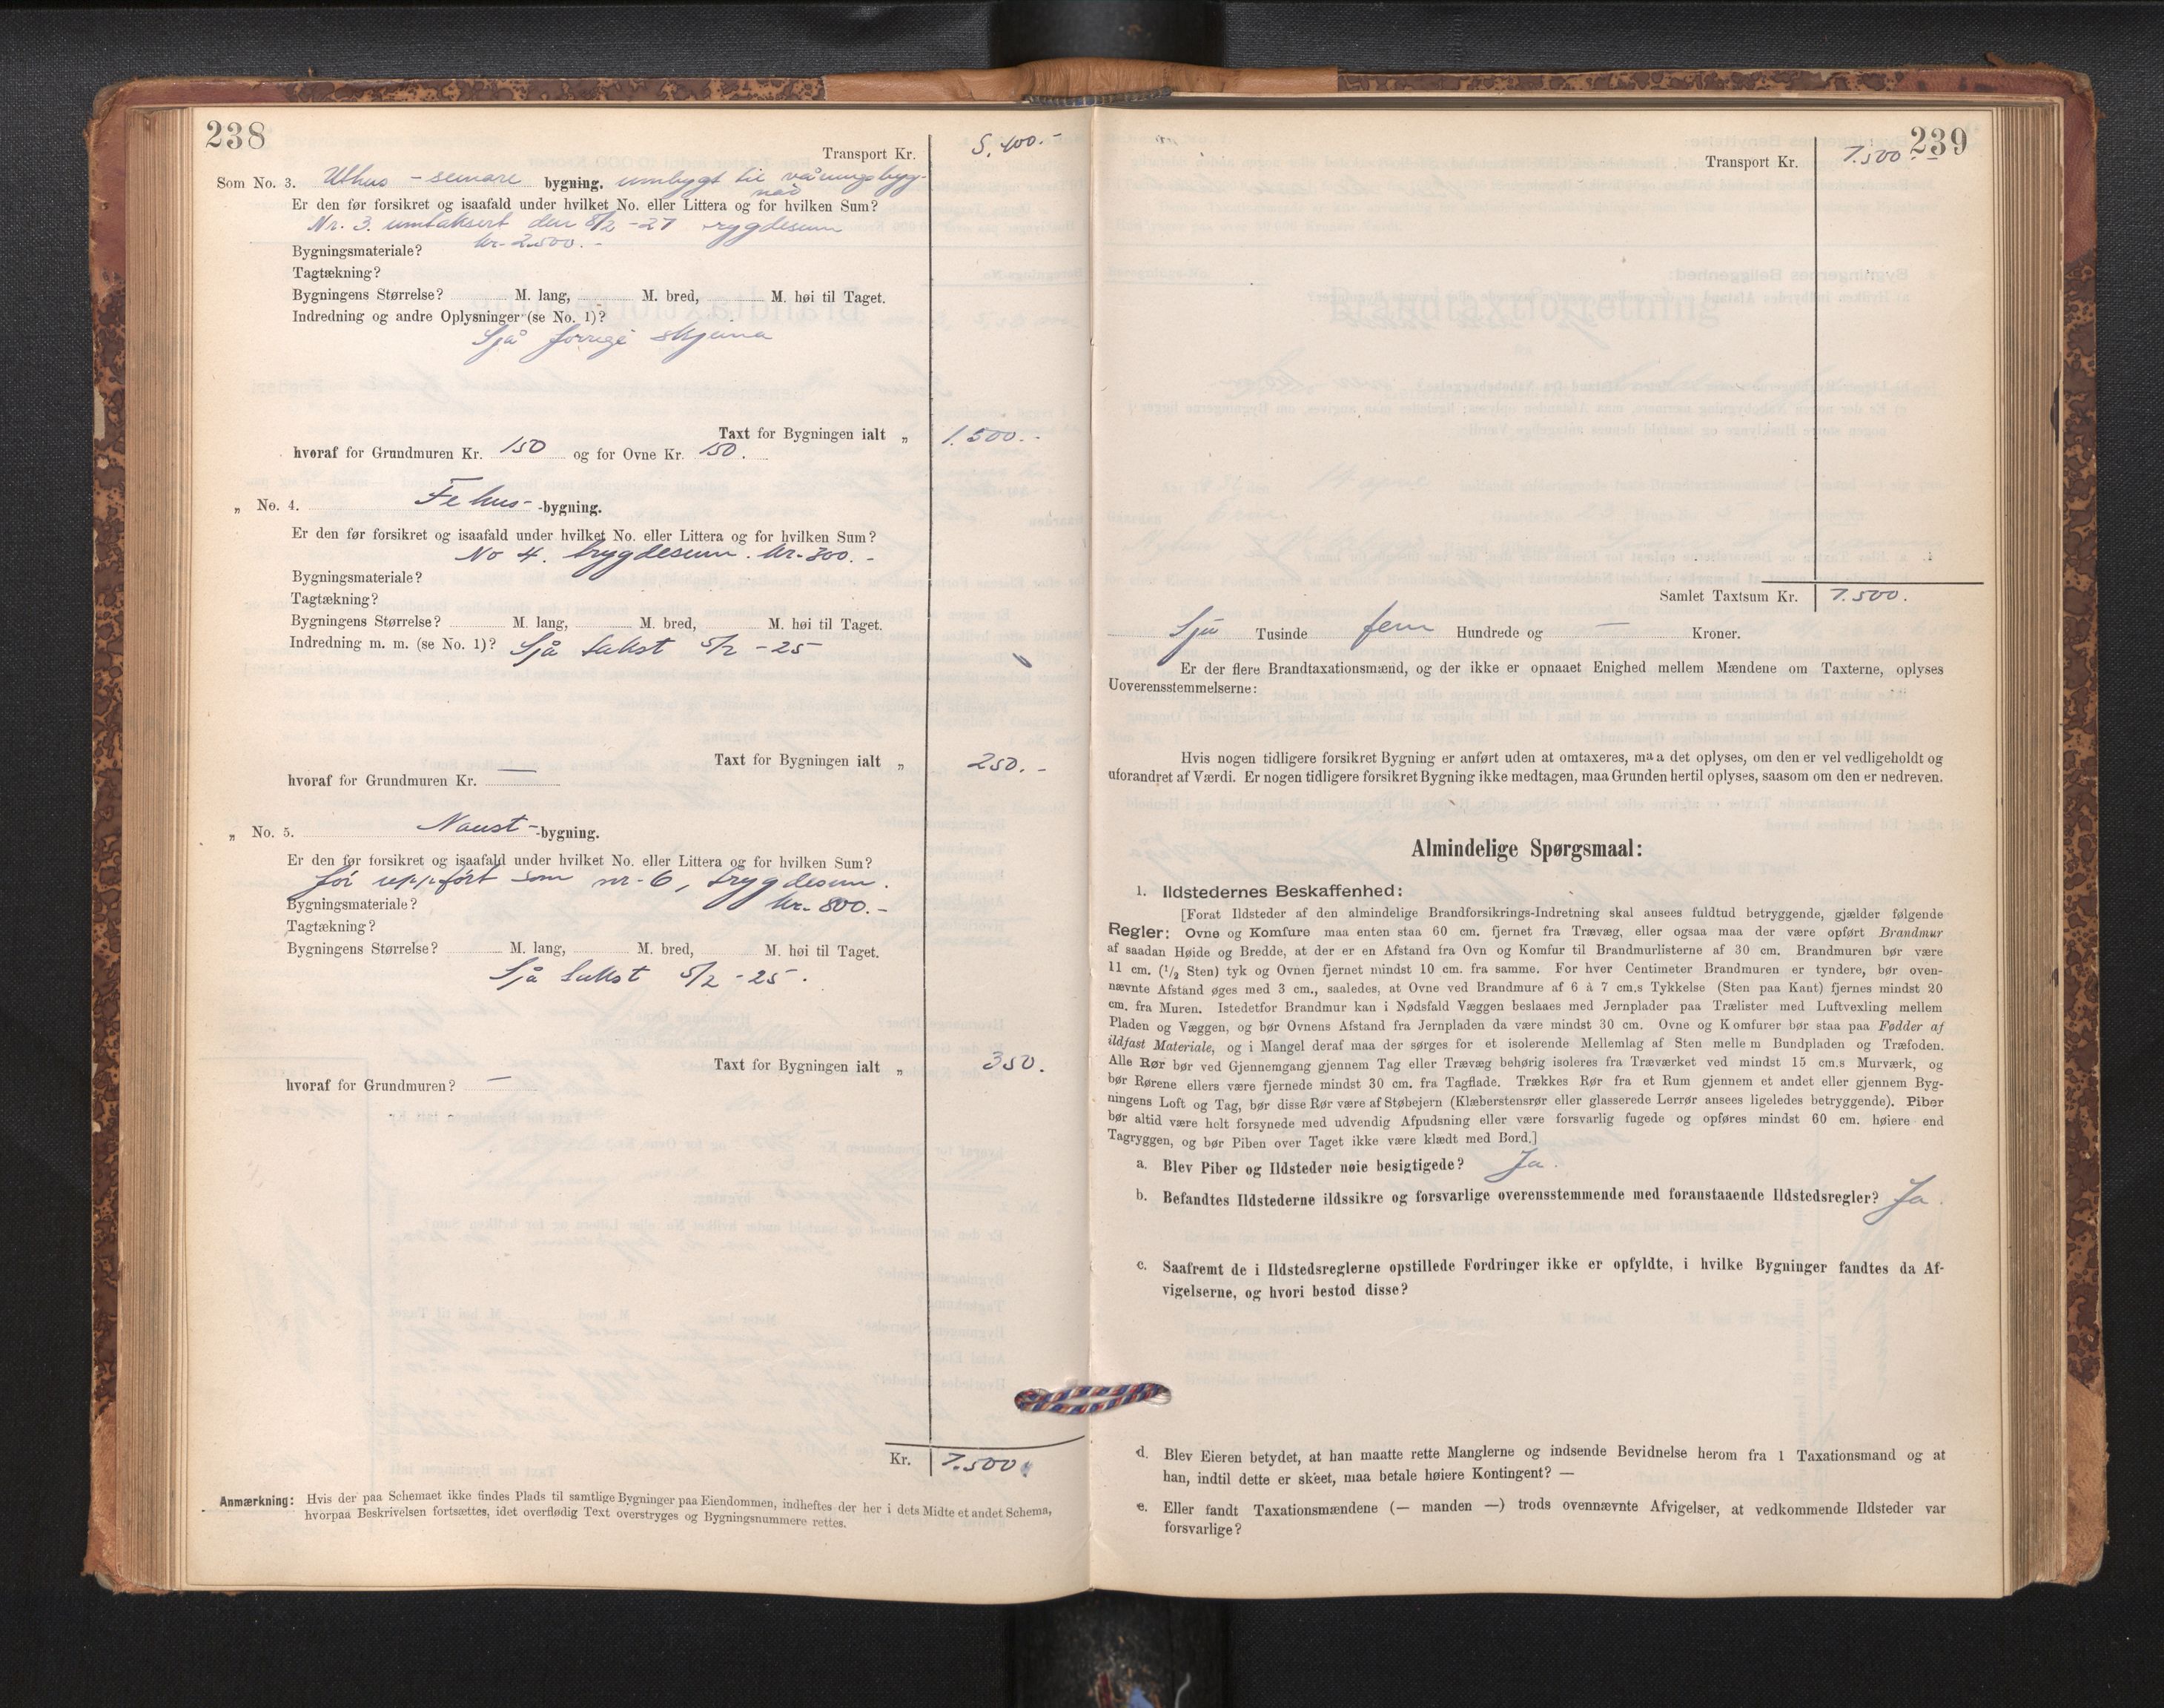 238
Transport Kr. 5.400.-
Som No. 3. Uthus - seinare bygning. umbygt til våningsbyg-
nad
Er den før forsikret og isaafald under hvilket No. eller Littera og for hvilken Sum?
Nr. 3. umtaksert den 5/2 -27 trygdesum
kr. 2.500.-
Bygningsmateriale?
Tagtækning?
Bygningens Størrelse? M. lang, M. bred, M. høi til Taget.
Indredning og andre Oplysninger (se No. 1)?
Sjå forrige skjema
Taxt for Bygningen ialt „ 1.500.-
hvoraf for Grundmuren Kr. 150 og for Ovne Kr. 150.
„ No. 4. Fehus- -bygning.
Er den før forsikret og isaafald under hvilket No. eller Littera og for hvilken Sum?
No 4. trygdesum. kr. 300.-
Bygningsmateriale?
Tagtækning?
Bygningens Størrelse? M. lang, M. bred, M. høi til Taget.
Indredning m. m. (se No. 1)? Sjå takst 5/2 -25
Taxt for Bygningen ialt „ 250.-
hvoraf for Grundmuren Kr. —
„ No. 5. Naust- -bygning.
Er den før forsikret og isaafald under hvilket No. eller Littera og for hvilken Sum?
før uppført som nr. 6, trygdesum.
Bygningsmateriale? kr. 800.-
Tagtækning?
Bygningens Størrelse? M. lang, M. bred, M. høi til Taget.
Sjå takst 5/2 -25.
Taxt for Bygningen ialt „ 350.
hvoraf for Grundmuren? —
Kr. 7.500.
Anmærkning: Hvis der paa Schemaet ikke findes Plads til samtlige Bygninger paa Eiendommen, indheftes der her i dets Midte et andet Schema,
hvorpaa Beskrivelsen fortsættes, idet overflødig Text overstryges og Bygningsnummere rettes.
239
Transport Kr. 7.500.-
Samlet Taxtsum Kr. 7.500.
Sju Tusinde fem Hundrede og — Kroner.
Er der flere Brandtaxationsmænd, og der ikke er opnaaet Enighed mellem Mændene om Taxterne, oplyses
Uoverensstemmelserne:
Hvis nogen tidligere forsikret Bygning er anført uden at omtaxeres, maa det oplyses, om den er vel vedligeholdt og
uforandret af Værdi. Er nogen tidligere forsikret Bygning ikke medtagen, maa Grunden hertil oplyses, saasom om den er nedreven.
Almindelige Spørgsmaal:
1. Ildstedernes Beskaffenhed:
[Forat Ildsteder af den almindelige Brandforsikrings-Indretning skal ansees fuldtud betryggende, gjælder følgende
Regler: Ovne og Komfure maa enten staa 60 cm. fjernet fra Trævæg, eller ogsaa maa der være opført Brandmur
af saadan Høide og Bredde, at der er en Afstand fra Ovn og Komfur til Brandmurlisterne af 30 cm. Brandmuren bør være
11 cm. (1/2 Sten) tyk og Ovnen fjernet mindst 10 cm. fra samme. For hver Centimeter Brandmuren er tyndere, bør oven-
nævnte Afstand øges med 3 cm., saaledes, at Ovne ved Brandmure af 6 à 7 cm.s Tykkelse (Sten paa Kant) fjernes mindst 20
cm. fra Muren. Istedetfor Brandmur kan i Nødsfald Væggen beslaaes med Jernplader paa Trælister med Luftvexling mellem
Pladen og Væggen, og bør Ovnens Afstand fra Jernpladen da være mindst 30 cm. Ovne og Komfurer bør staa paa Fødder af
ildfast Materiale, og i Mangel deraf maa der sørges for et isolerende Mellemlag af Sten mellem Bundpladen og Træfoden.
Alle Rør bør ved Gjennemgang gjennem Tag eller Trævæg behørig isoleres fra Træværket ved mindst 15 cm.s Murværk, og
bør Rørene ellers være fjernede mindst 30 cm. fra Tagflade. Trækkes Rør fra et Rum gjennem et andet eller gjennem Byg-
ningens Loft og Tag, bør disse Rør være af Støbejern (Klæberstensrør eller glasserede Lerrør ansees ligeledes betryggende). Piber
bør altid være helt forsynede med udvendig Afpudsning eller være forsvarlig fugede og opføres mindst 60 cm. høiere end
Tagryggen, og bør Piben over Taget ikke være klædt med Bord.]
a. Blev Piber og Ildsteder nøie besigtigede? Ja.
b. Befandtes Ildstederne ildssikre og forsvarlige overensstemmende med foranstaaende Ildstedsregler? Ja.
c. Saafremt de i Ildstedsreglerne opstillede Fordringer ikke er opfyldte, i hvilke Bygninger fandtes da Af-
vigelserne, og hvori bestod disse?
d. Blev Eieren betydet, at han maatte rette Manglerne og indsende Bevidnelse herom fra 1 Taxationsmand og at
han, indtil dette er skeet, maa betale høiere Kontingent? —
e. Eller fandt Taxationsmændene (— manden —) trods ovennævnte Afvigelser, at vedkommende Ildsteder var
forsvarlige?